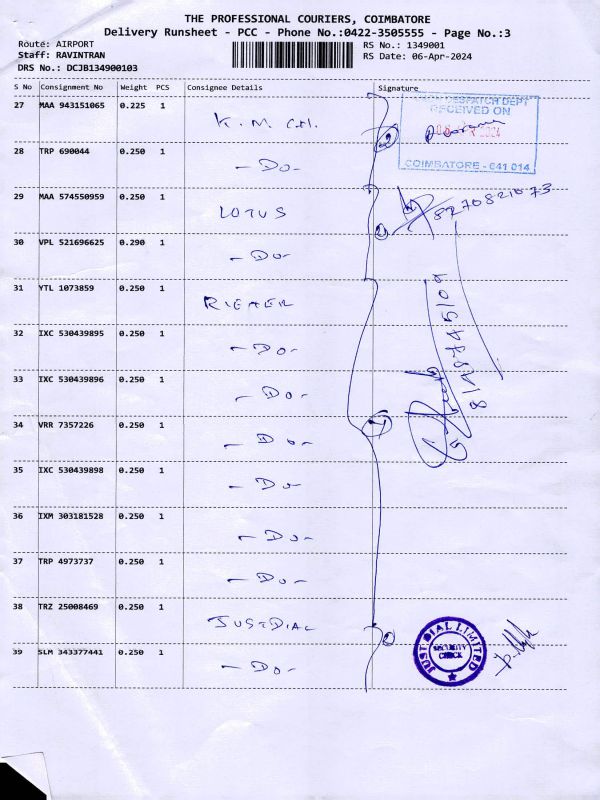 THE PROFESSIONAL COURIERS, COIMBATORE
Delivery Runsheet - PCC - Phone No.:0422-3505555 - Page No.:3
Route: AIRPORT RS No.: 1349001
Staff: RAVINTRAN RS Date: 06-Apr-2024
DRS No.: DCJB134900103
S No Consignment No Weight PCS Consignee Details Signature
27 MAA 943151065 0.225 1
K. M. C.H.
DESPATCH DEPT
RECEIVED ON
2024
COIMBATORE - 641 014
28 TRP 690044 0.250 1
- Do -
29 MAA 574550959 0.250 1
LOTUS
8270821073
30 VPL 521696625 0.290 1
- Do -
31 YTL 1073859 0.250 1
32 IXC 530439895 0.250 1
- Do -
33 IXC 530439896 0.250 1
- Do -
34 VRR 7357226 0.250 1
- Do -
35 IXC 530439898 0.250 1
- Do -
36 IXM 303181528 0.250 1
- Do -
37 TRP 4973737 0.250 1
- Do -
38 TRZ 25008469 0.250 1
JUSTDIAL
JUST DIAL LIMITED
SECURITY
CHECK
39 SLM 343377441 0.250 1
- Do -